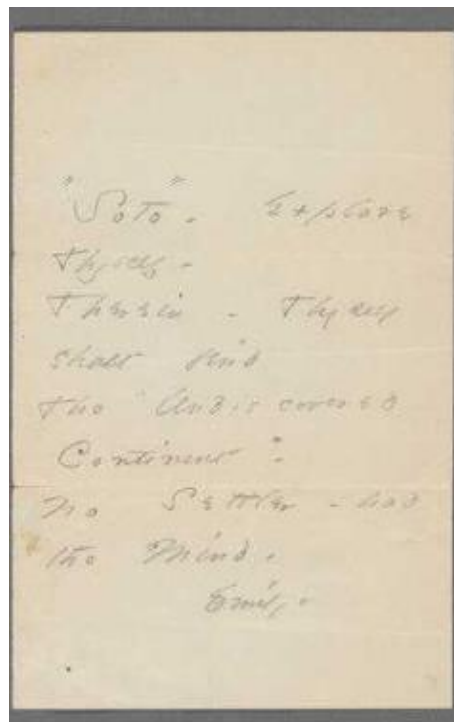 "Soto" - Explore
Thyself -
Therein - Thyself
shalt find
The "Undiscovered
Continent":
No Settler - had
the Mind.
Emily -